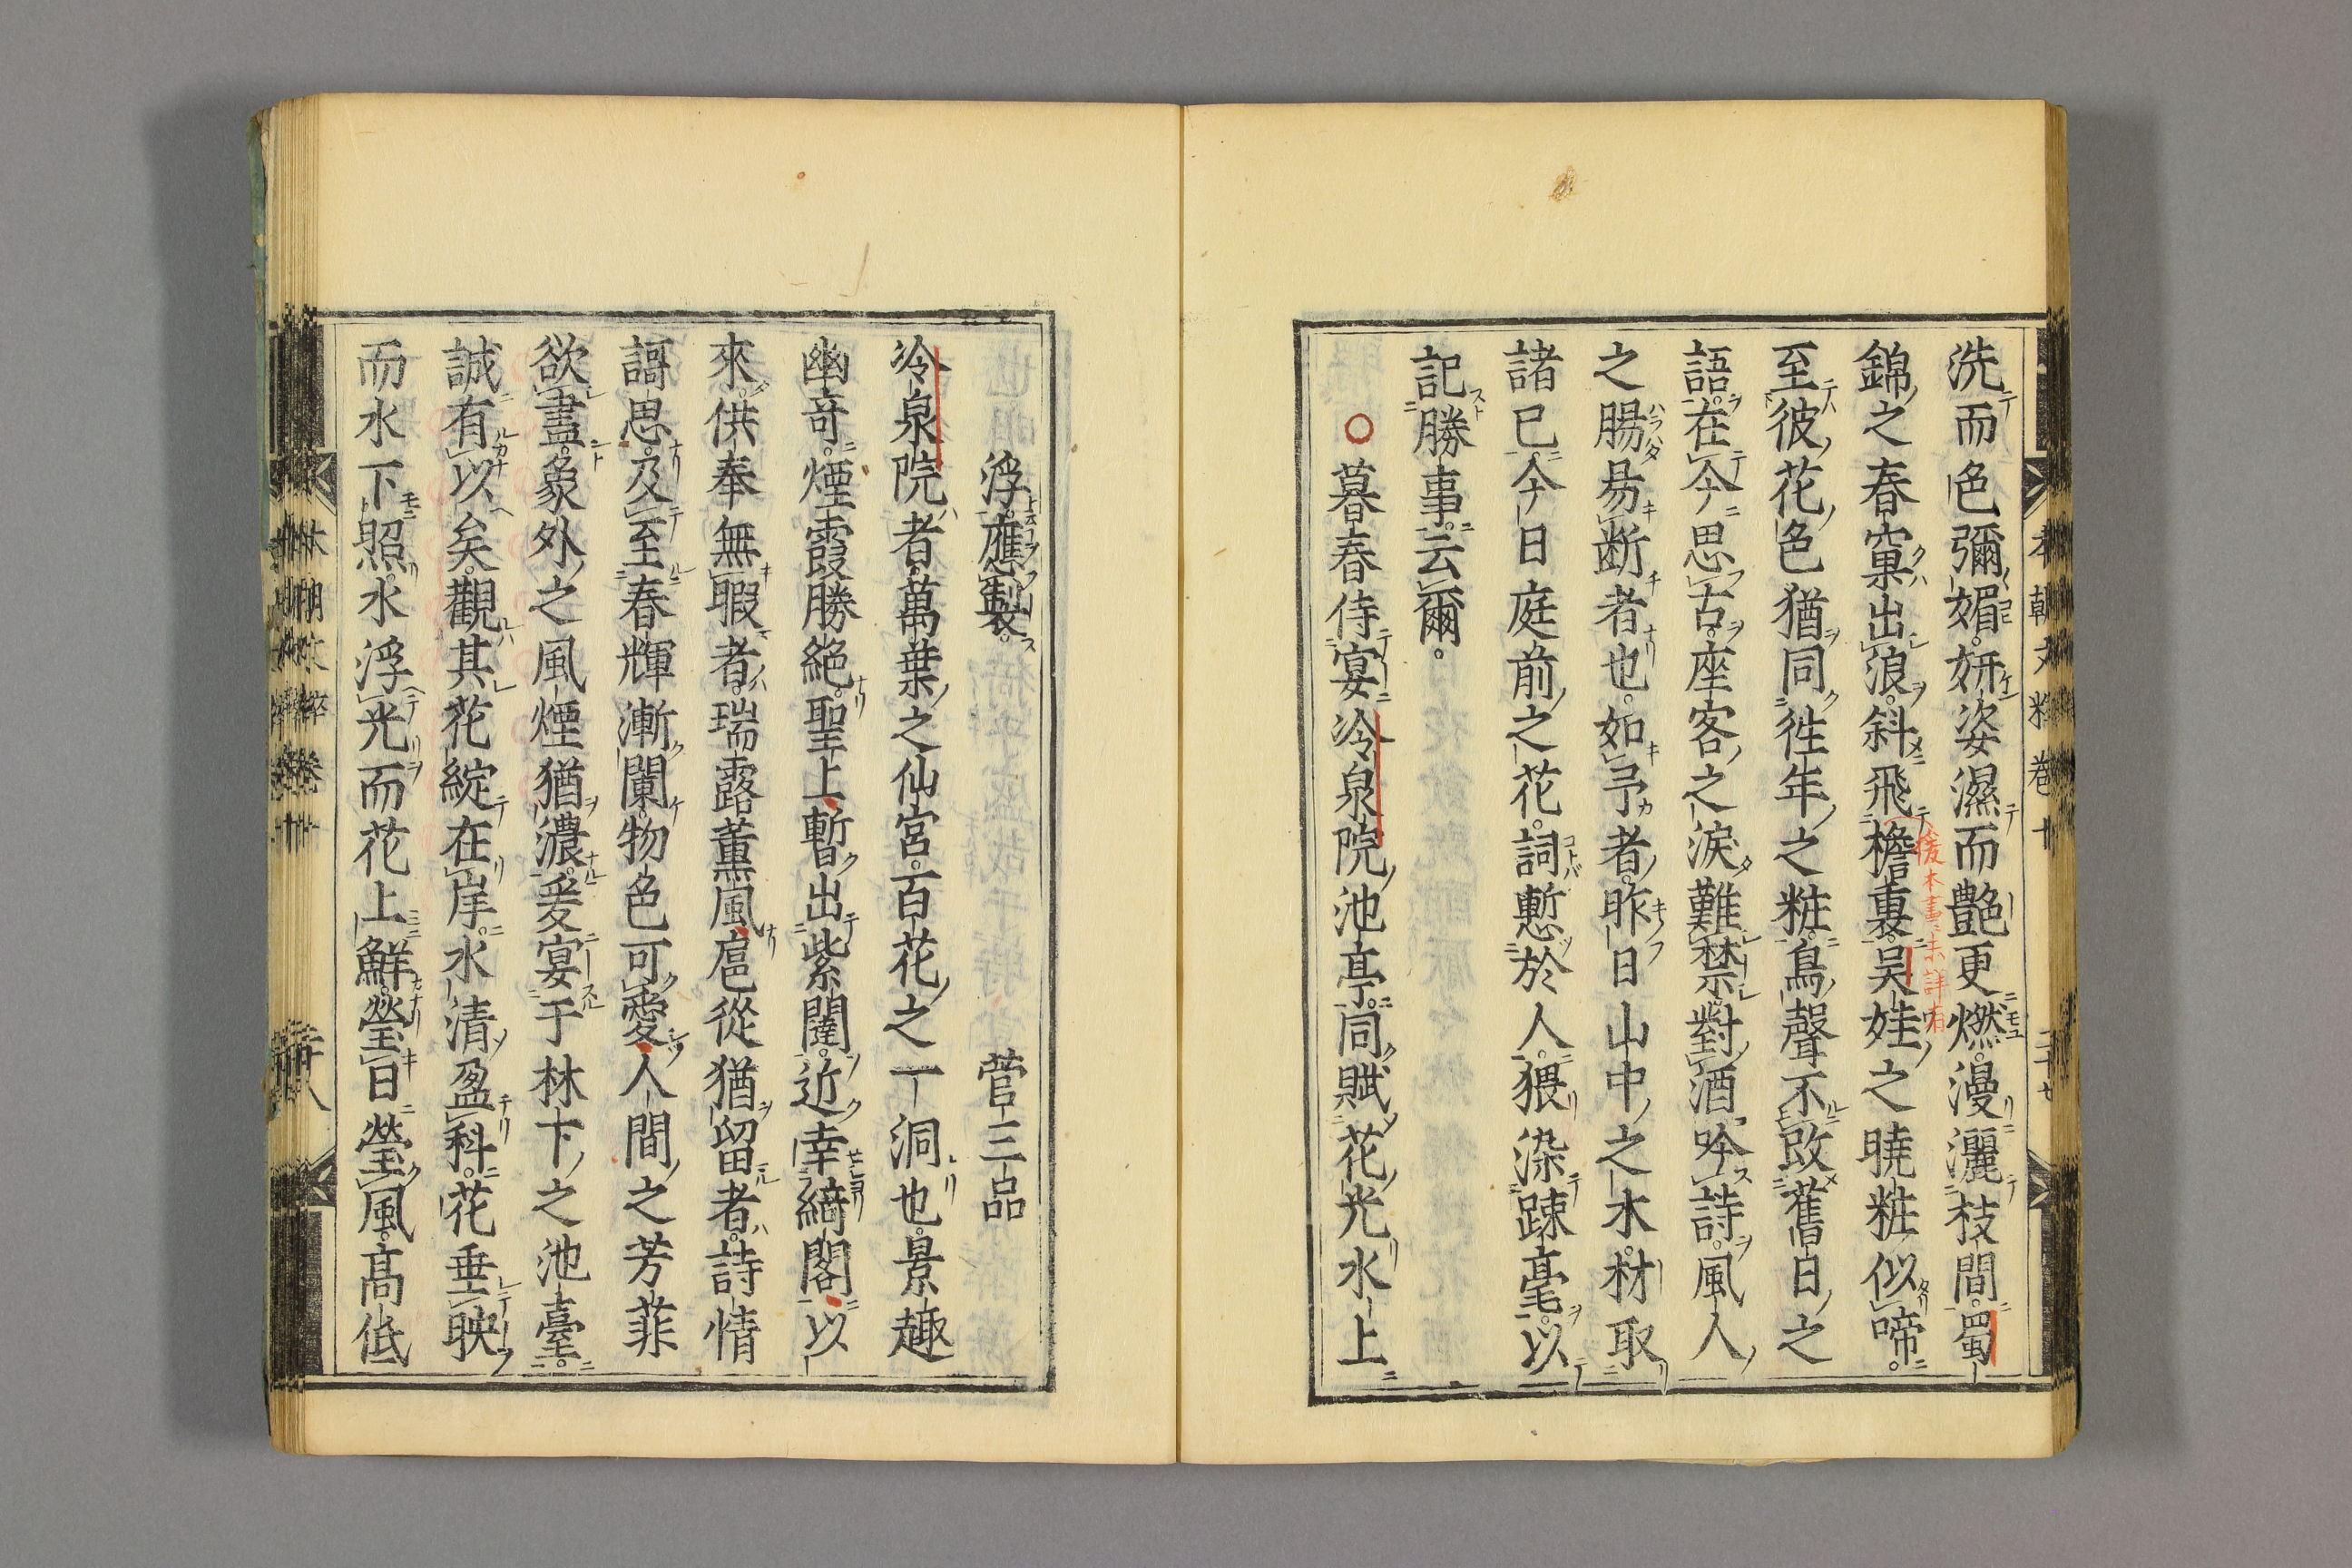 洗而色彌媚。妍姿濕而艶更燃。漫灑枝間。蜀
錦之春窠出浪。斜飛檐裏。吴娃之曉粧似啼。
至彼花色猶同徃年之粧。鳥聲不改舊日之
語。在今思古。座客之涙難禁。對酒吟詩。風人
之腸易断者也。如予者。昨日山中之木。材取
諸已。今日庭前之花。詞慙於人。猥染踈毫。以
記勝事。云爾。
暮春侍宴冷泉院池亭。同賦花光水上
浮。應製。 菅三品
冷泉院者。萬葉之仙宮。百花之一洞也。景趣
幽竒。煙霞勝絶。聖上暫出紫闥。近幸綺閣。以
來。供奉無暇者。瑞露薫風。扈從猶留者。詩情
謌思。及至春輝漸闌。物色可愛。人間之芳菲
欲盡。象外之風煙猶濃。爰宴于林下之池臺。
誠有以矣。觀其花綻在岸。水清盈科。花垂映
而水下照。水浮光而花上鮮。瑩日瑩風。髙低
本朝文粹卷十 二十七
本朝文粹卷十 二十八